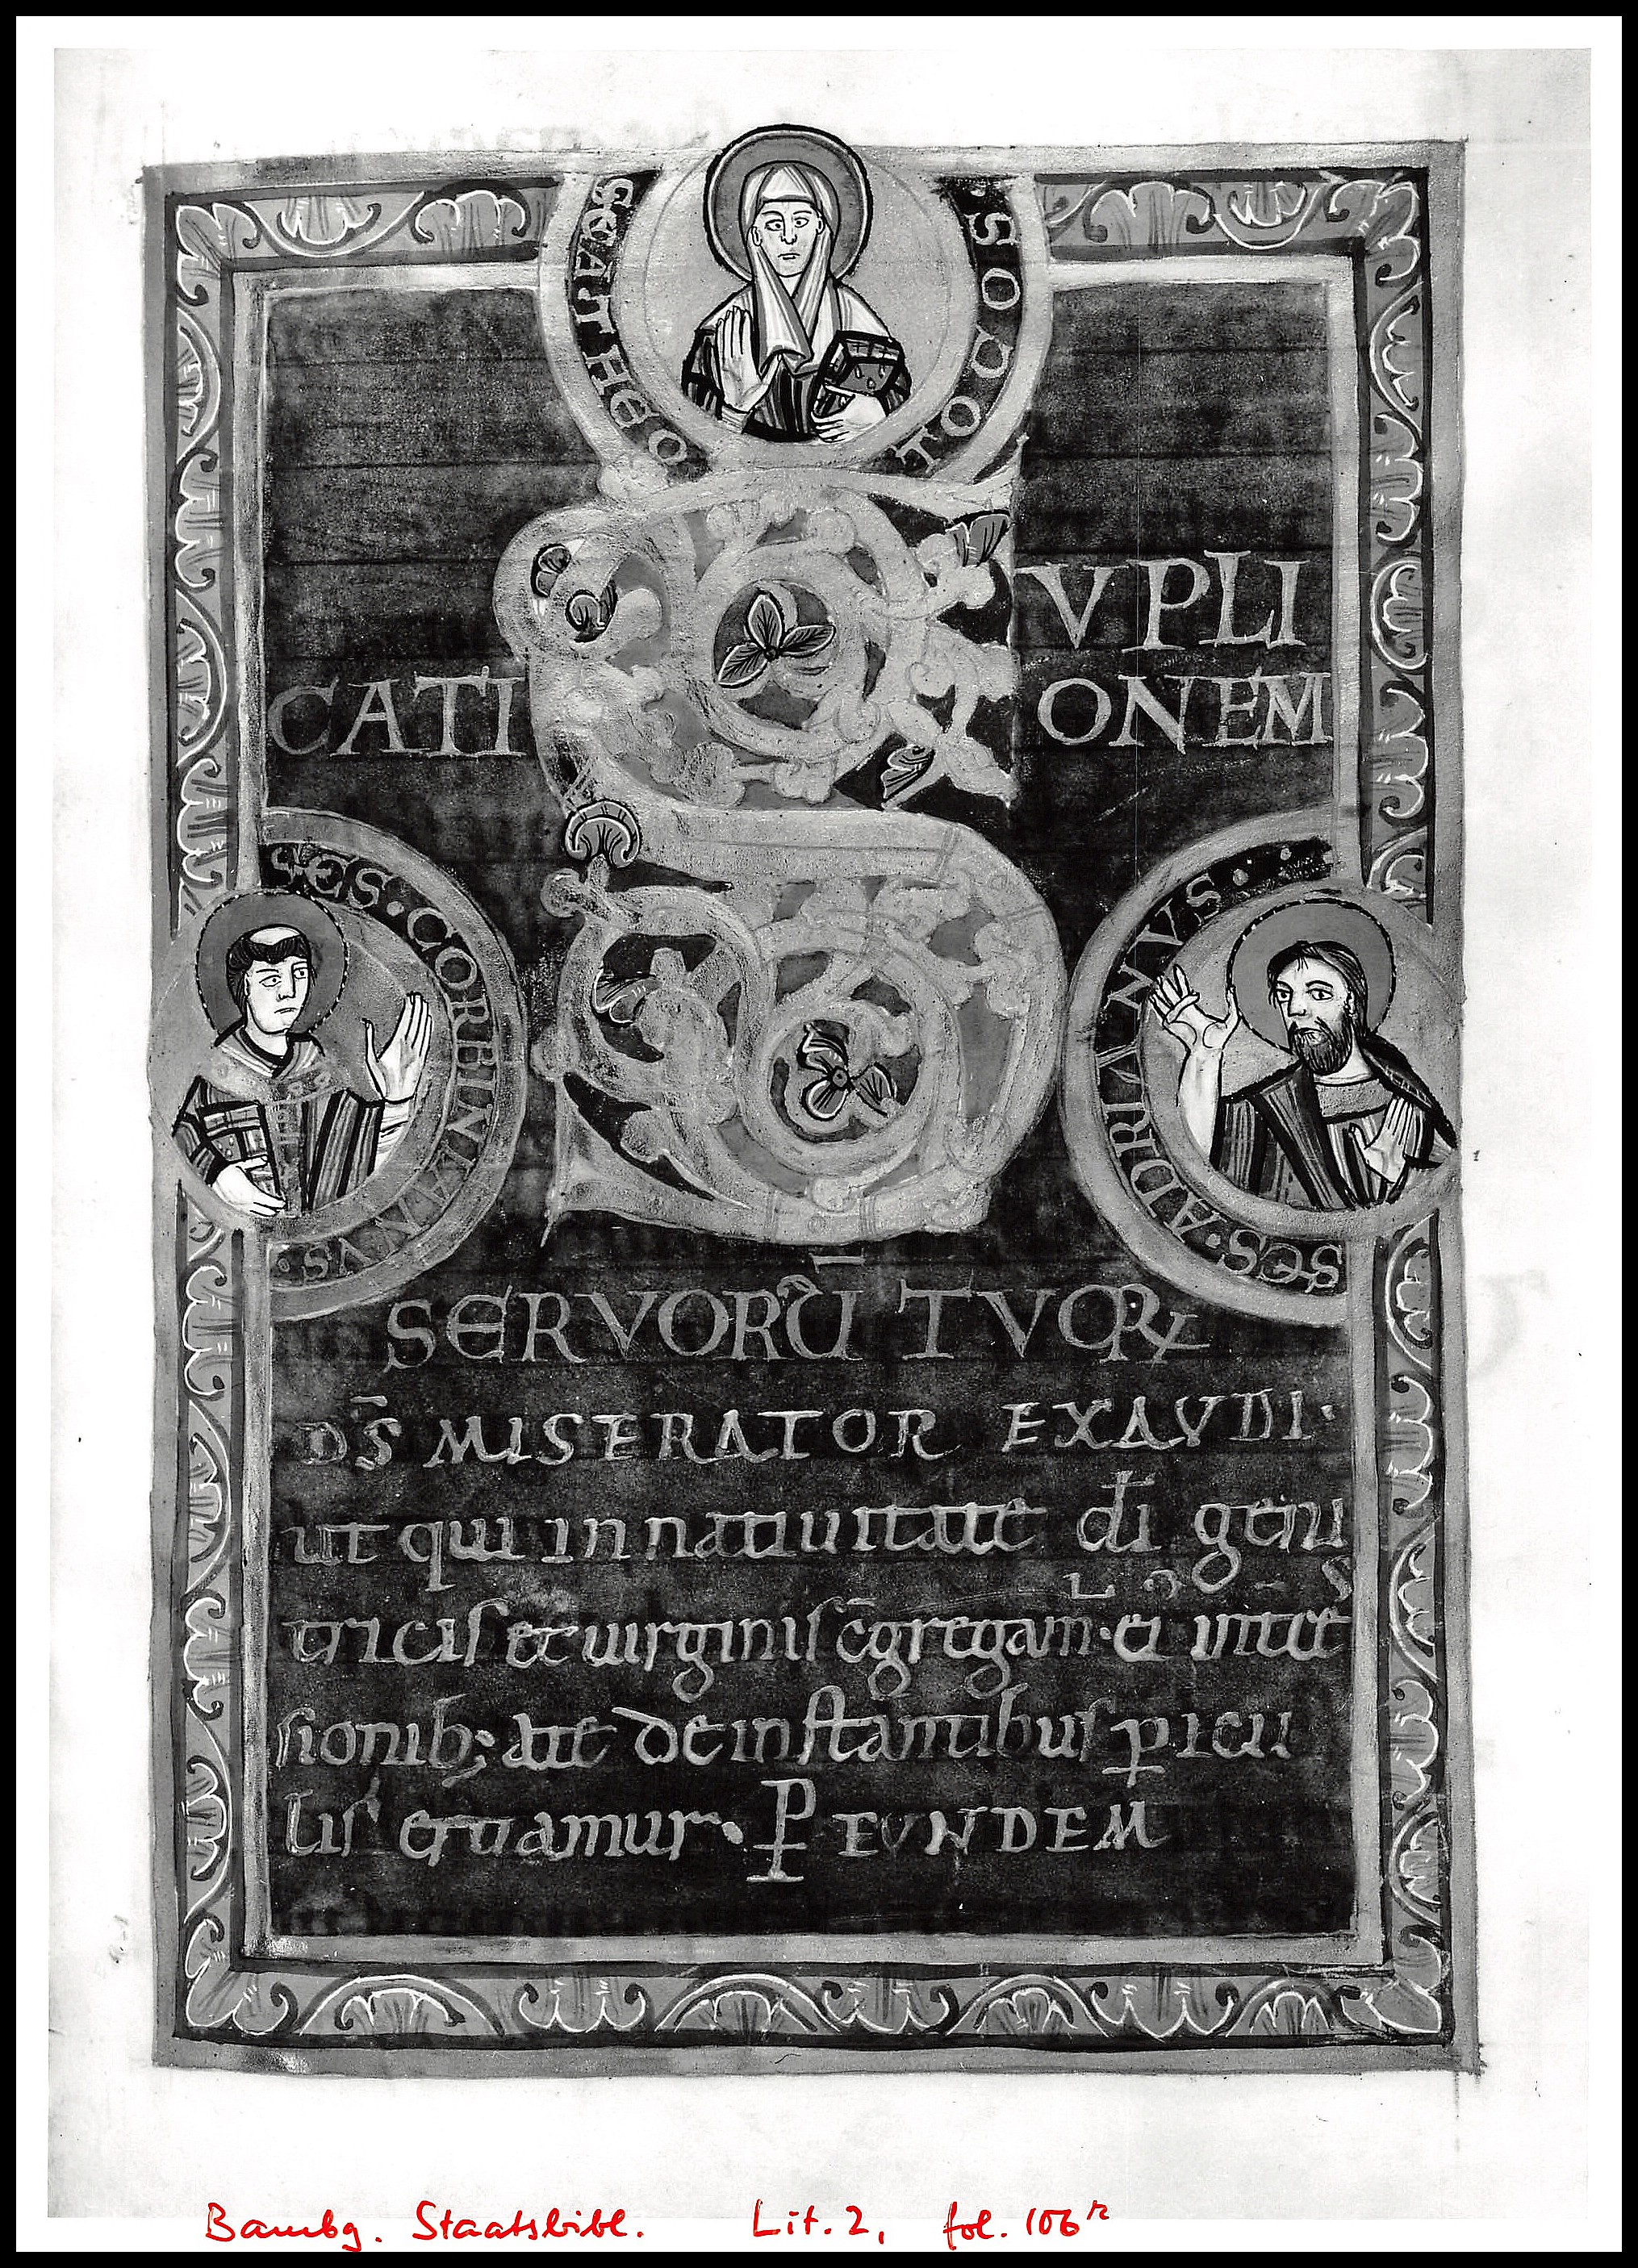 SCA THEO TOCOS
S VPLI
CATI ONEM
SCS · CORBINIANVS ·
SCS · ADRIANVS ·
SERVORŪ TVOꝜ
DS̄ MISERATOR EXAVDI ·
ut qui in natiuitate dī geni
tricis et uirginis c̄gregam̄ · ei intces
sionib; a te de instantibus ꝑicu
lis eruamur · P EVNDEM
Bambg. Staatsbibl. Lit. 2, fol. 106r